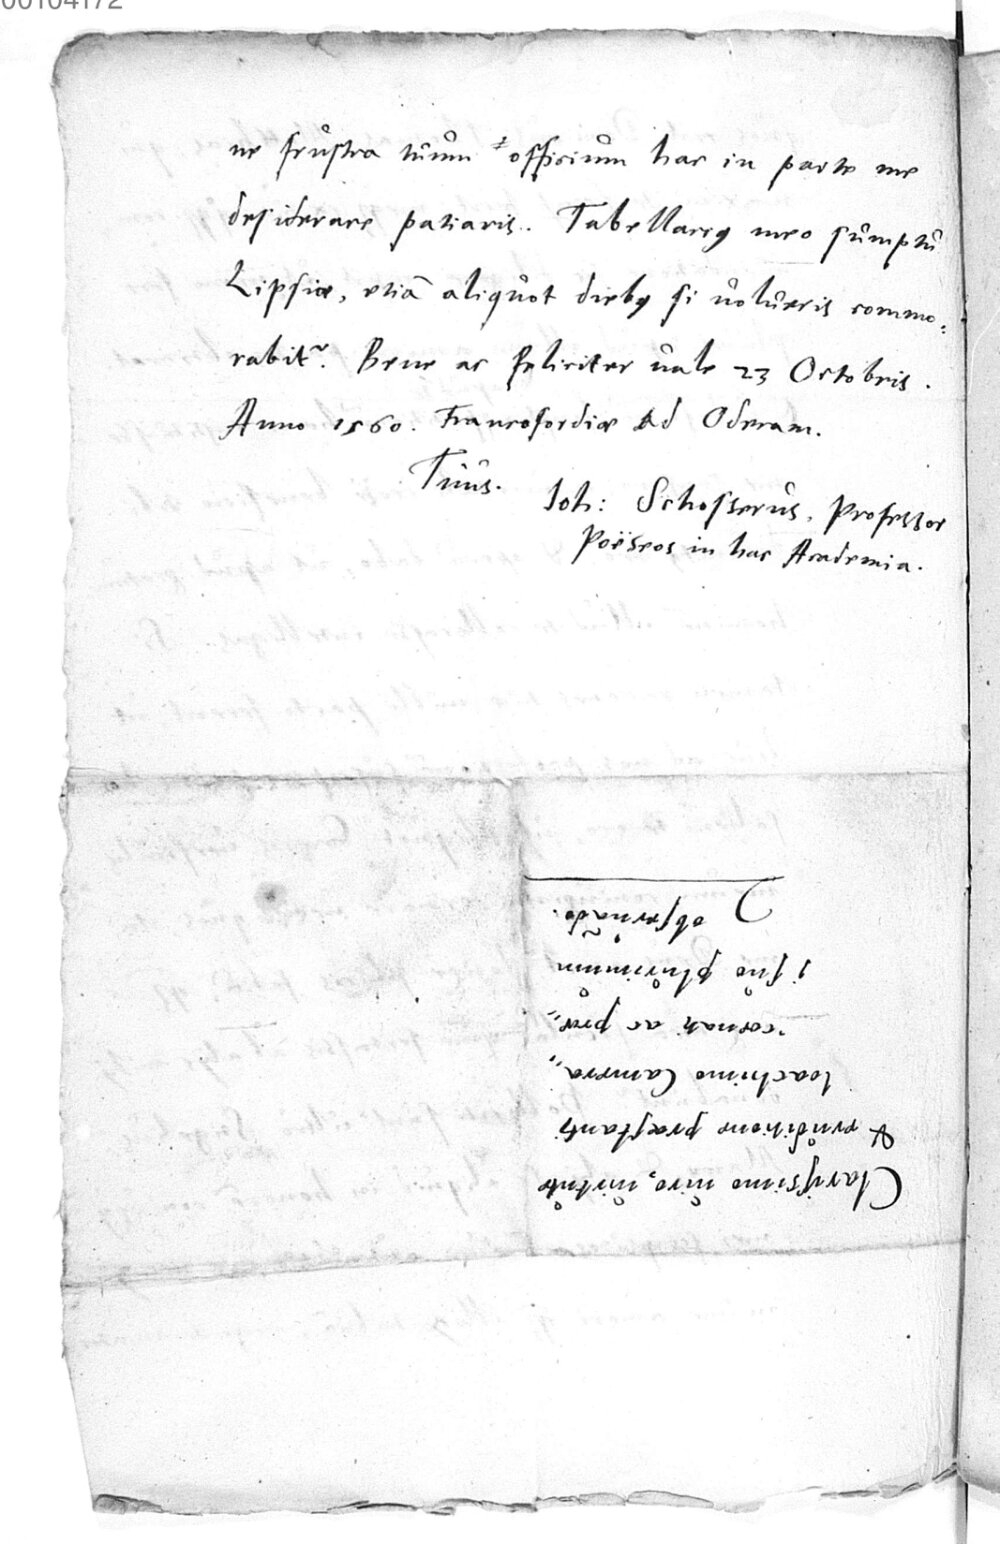 00104172
ne frustra tuum officium hac in parte me
desiderare patiaris. Tabellarius meo sumptu
Lipsiæ, etiā aliquot diebus si uolueris commo:
rabit~. Bene ac feliciter uale 23 Octobris.
Anno 1560. Francofordiæ Ad Oderam.
Tuus.
Ioh: Schosserus, Professor
Poëseos in hac Academia.
Clarissimo uiro, uirtute
& eruditione præstanti
Ioachimo Camera,,
rio, ac præ,,
suo plurimum
obseruādo.